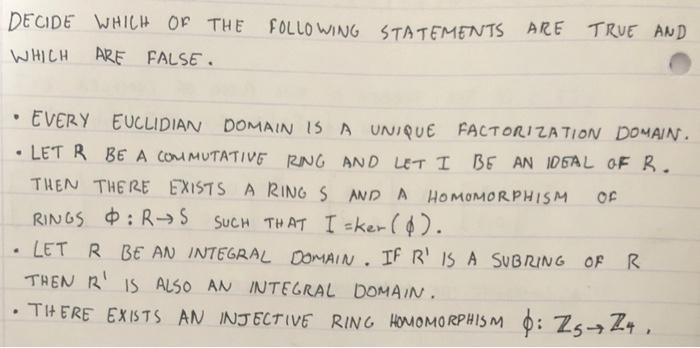 DECIDE WHICH OF THE FOLLOWING STATEMENTS ARE TRUE AND
WHICH ARE FALSE.
• EVERY EUCLIDIAN DOMAIN IS A UNIQUE FACTORIZATION DOMAIN.
• LET R BE A COMMUTATIVE RING AND LET I BE AN IDEAL OF R.
THEN THERE EXISTS A RING S AND A HOMOMORPHISM OF
RINGS ϕ: R→S SUCH THAT I = ker(ϕ).
• LET R BE AN INTEGRAL DOMAIN. IF R' IS A SUBRING OF R
THEN R' IS ALSO AN INTEGRAL DOMAIN.
• THERE EXISTS AN INJECTIVE RING HOMOMORPHISM ϕ: ℤ₅→ℤ₄.